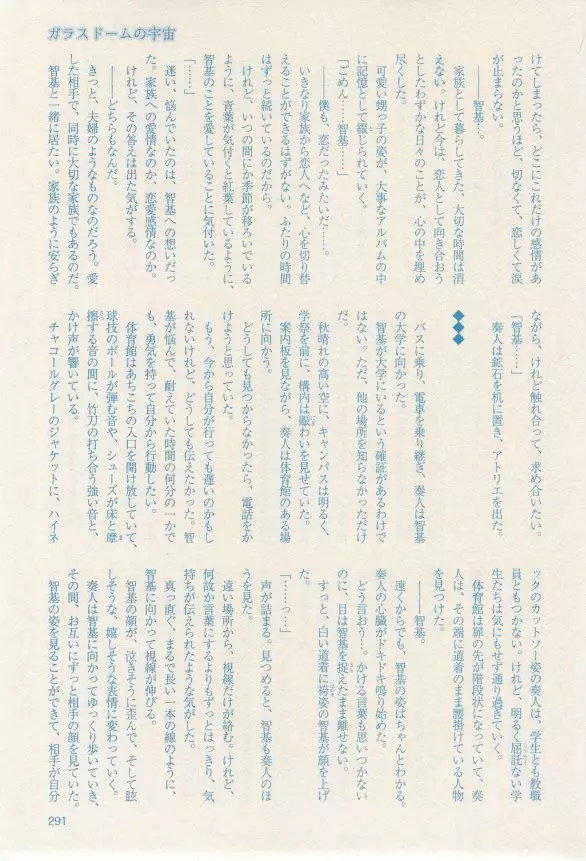 ガラスドームの宇宙
けてしまったら、どこにこれだけの感情があ
ったのかと思うほど、切なくて、恋しくて涙
が止まらない。
――智基…。
家族として暮らしてきた、大切な時間は消
えない。けれど今は、恋人として向き合おう
としたわずかな日々のことが、心の中を埋め
尽くした。
可愛い甥っ子の姿が、大事なアルバムの中
に記憶として綴じられていく。
「ごめん…智基……」
――僕も、恋だったみたいだ……。
いきなり家族から恋人へなど、心を切り替
えることができるはずがない。ふたりの時間
はずっと続いているのだから。
けれど、いつの間にか季節が移ろいでいる
ように、青葉が気付くと紅葉しているように、
智基のことを愛していることに気付いた。
「……」
迷い、悩んでいたのは、智基への想いだっ
た。家族への愛情なのか、恋愛感情なのか。
けれど、その答えは出た気がする。
――どちらもなんだ。
きっと、夫婦のようなものなのだろう。愛
した相手で、同時に大切な家族でもあるのだ。
智基と一緒に居たい。家族のように安らぎ
ながら、けれど触れ合って、求め合いたい。
「智基……」
奏人は鉱石を机に置き、アトリエを出た。
◆◆◆
バスに乗り、電車を乗り継ぎ、奏人は智基
の大学に向かった。
智基が大学にいるという確証があるわけで
はない。ただ、他の場所を知らなかっただけ
だ。
秋晴れの高い空に、キャンパスは明るく、
学祭を前に、構内は賑わいを見せていた。
案内板を見ながら、奏人は体育館のある場
所に向かう。
どうしても見つからなかったら、電話をか
けようと思っていた。
もう、今から自分が行っても遅いのかもし
れないけれど、どうしても伝えたかった。智
基が悩んで、耐えていた時間の何分の一かで
も、勇気を持って自分から行動したい。
体育館はあちこちの入口を開け放していて、
球技のボールが弾む音や、シューズが床と摩
擦する音の間に、竹刀の打ち合う強い音と、
かけ声が響いている。
チャコールグレーのジャケットに、ハイネ
ックのカットソー姿の奏人は、学生とも教職
員ともつかない。けれど、明るく屈託ない学
生たちは気にもせず通り過ぎていく。
体育館は扉の先が階段状になっていて、奏
人は、その端に道着のまま腰掛けている人物
を見つけた。
――智基。
遠くからでも、智基の姿はちゃんとわかる。
奏人の心臓がドキドキ鳴り始めた。
どう言おう…。かける言葉も思いつかない
のに、目は智基を捉えたまま離せない。
すっと、白い道着に袴姿の智基が顔を上げ
た。
「……っ…」
声が詰まる。見つめると、智基も奏人のほ
うを見た。
遠い場所から、視線だけが絡む。けれど、
何故か言葉にするよりもずっとはっきり、気
持ちが伝えられたような気がした。
真っ直ぐ、まるで長い一本の線のように、
智基に向かって視線が伸びる。
智基の顔が、泣きそうに歪んで、そして眩
しそうな、嬉しそうな表情に変わっていく。
奏人は智基に向かってゆっくり歩いていき、
その間、お互いにずっと相手の顔を見ていた。
智基の姿を見ることができて、相手が自分
291